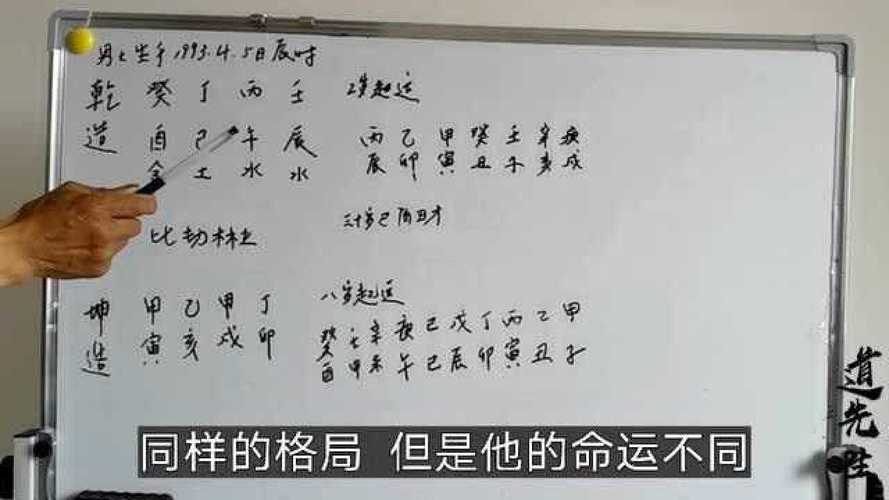 男士生于1993.4.5日辰时
乾 癸 丁 丙 壬 2岁起运
造 酉 巳 午 辰 丙 乙 甲 癸 壬 辛 庚
金 土 水 水 辰 卯 寅 丑 子 亥 戌
比劫林立
三十岁已
坤 甲 乙 甲 丁 八岁起运
造 寅 亥 戌 卯 癸 壬 辛 庚 己 戊 丁 丙 乙 甲
酉 申 未 午 巳 辰 卯 寅 丑 子
同样的格局 但是他的命运不同
道先生